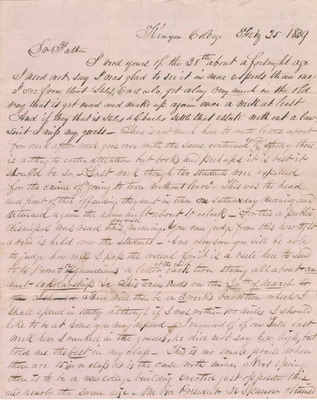 Kenyon College Feby 25 1839
Dr Father
I recd yours of the 28th about a fortnight ago
I need not say I was glad to see it in more respects than one
I see from that Silas, &c get along very much in the old
way that is get mad and make up again once a week at least
And if they that is Silas & Charles settle that estate with out a law
suit I miss my guess — There is not much here to write of
for week after week goes over with the same continued of study there
is nothing to excite attention but books and perhaps it is best it
should be so — Last week though two students were expelled
for the crime of going to town without leave. This was the head
and front of this offending they went in town on Saturday morning and
returned again the same about 10 o'clock — For this a public
dismissal was read this morning. You can judge from this how tight
a rein is held over the students — And very soon you will be able
to judge how well I pass the ordeal for it is a rule here to send
to the Parents & Guardians a letter each term stating all about
conduct scholarship &c This term ends on the of March
There will then be a 3 weeks vacation which I
shall spend in study although if I was within 100 miles I should
like to be at home you may depend — I enquired of of our Tutor last
week how I ranked in the grades, he did not say how high, but
told me the best in my class — This is no small praise when
there are in a class as is the case with mine. Next spring
there is to be a new college building erected just opposite this
one nearly the same size — The Ex President Mr Sparrow retains